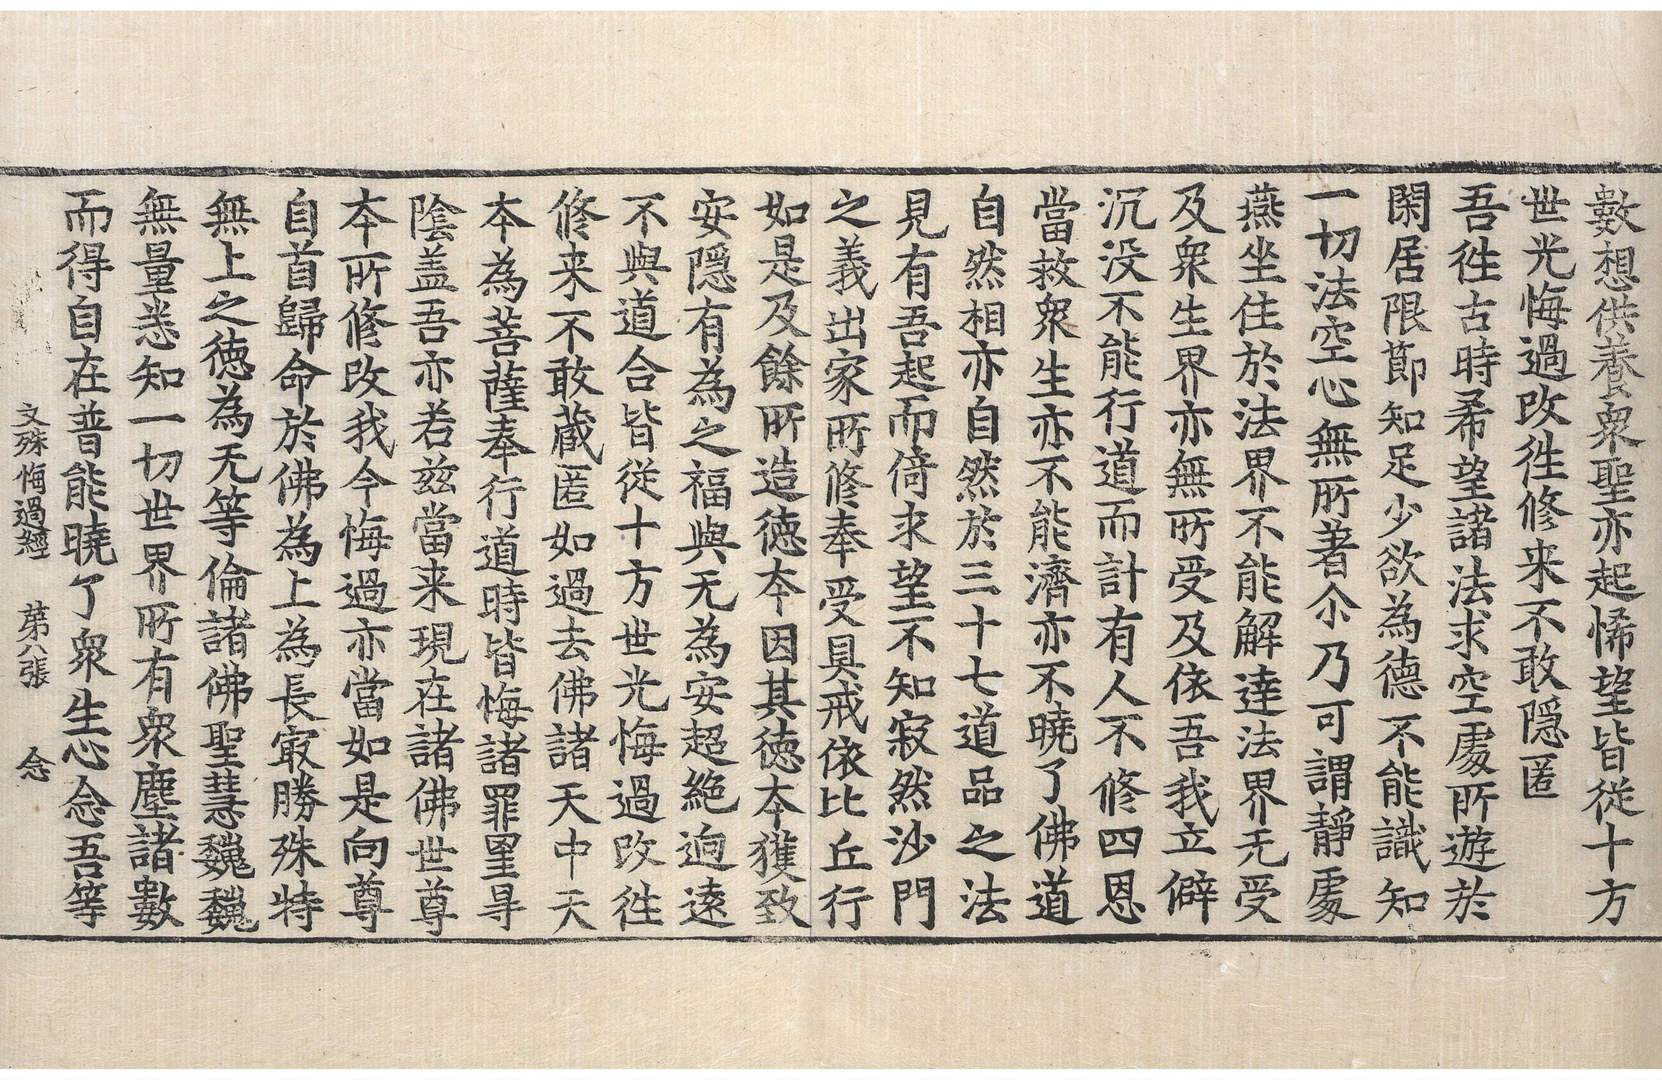 數想供養衆聖亦起悕望皆從十方
世光悔過改徃修来不敢隱匿
吾徃古時希望諸法求空處所遊於
閑居限節知足少欲為德不能識知
一切法空心無所著尒乃可謂靜處
燕坐住於法界不能解達法界无受
及衆生界亦無所受及依吾我立僻
沉没不能行道而計有人不修四恩
當救衆生亦不能濟亦不曉了佛道
自然相亦自然於三十七道品之法
見有吾起而倚求望不知寂然沙門
之義出家所修奉受具戒依比丘行
如是及餘所造德本因其德本獲致
安隱有為之福與无為安超絶逈遠
不與道合皆從十方世光悔過改徃
修来不敢藏匿如過去佛諸天中天
本為菩薩奉行道時皆悔諸罪罣㝵
陰盖吾亦若兹當来現在諸佛世尊
本所修改我今悔過亦當如是向尊
自首歸命於佛為上為長㝡勝殊特
無上之德為无等倫諸佛聖慧巍巍
無量悉知一切世界所有衆塵諸數
而得自在普能曉了衆生心念吾等
文殊悔過經 苐六張 念